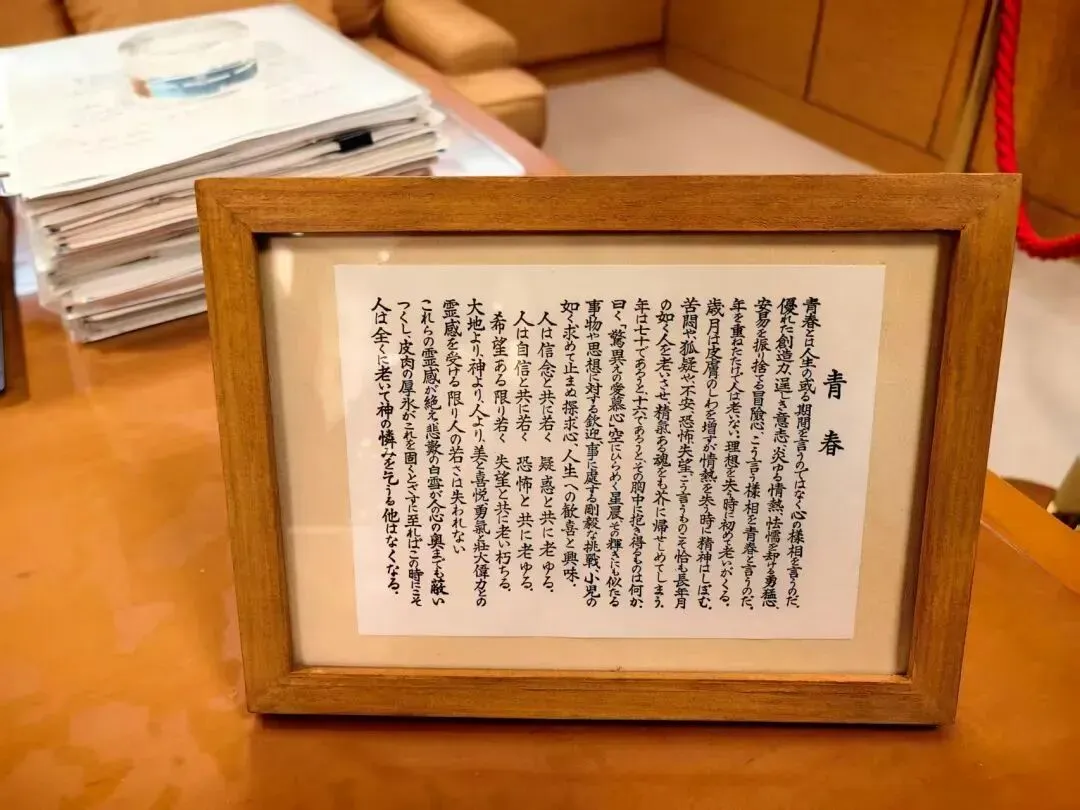 青春
青春とは人生の或る期間を言うのではなく心の様相を言うのだ。
優れた創造力、逞しき意志、炎ゆる情熱、怯懦を却ける勇猛心、
安易を振り捨てる冒険心、こう言う様相を青春と言うのだ。
年を重ねただけで人は老いない。理想を失う時に初めて老いがくる。
歳月は皮膚のしわを増すが情熱を失う時に精神はしぼむ。
苦悶や、狐疑や、不安、恐怖、失望、こう言うものこそ恰も長年月
の如く人を老いさせ、精気ある魂をも芥に帰せしめてしまう。
年は七十であろうと十六であろうと、その胸中に抱き得るものは何か。
曰く「驚異えの愛慕心」空にひらめく星晨、その輝きにも似たる
事物や思想に対する欽迎、事に處する剛毅な挑戦、小児の
如く求めて止まぬ探求心、人生への歓喜と興味。
人は信念と共に若く 疑惑と共に老ゆる。
人は自信と共に若く 恐怖と共に老ゆる。
希望ある限り若く 失望と共に老い朽ちる。
大地より、神より、人より、美と喜悦、勇氣と壮大、偉力との
霊感を受ける限り人の若さは失われない
これらの霊感が絶え、悲歎の白雪が人の心の奥までも蔽い
つくし、皮肉の厚氷がこれを固くとざすに至ればこの時にこそ
人は全くに老いて神の憐みを乞うる他はなくなる。